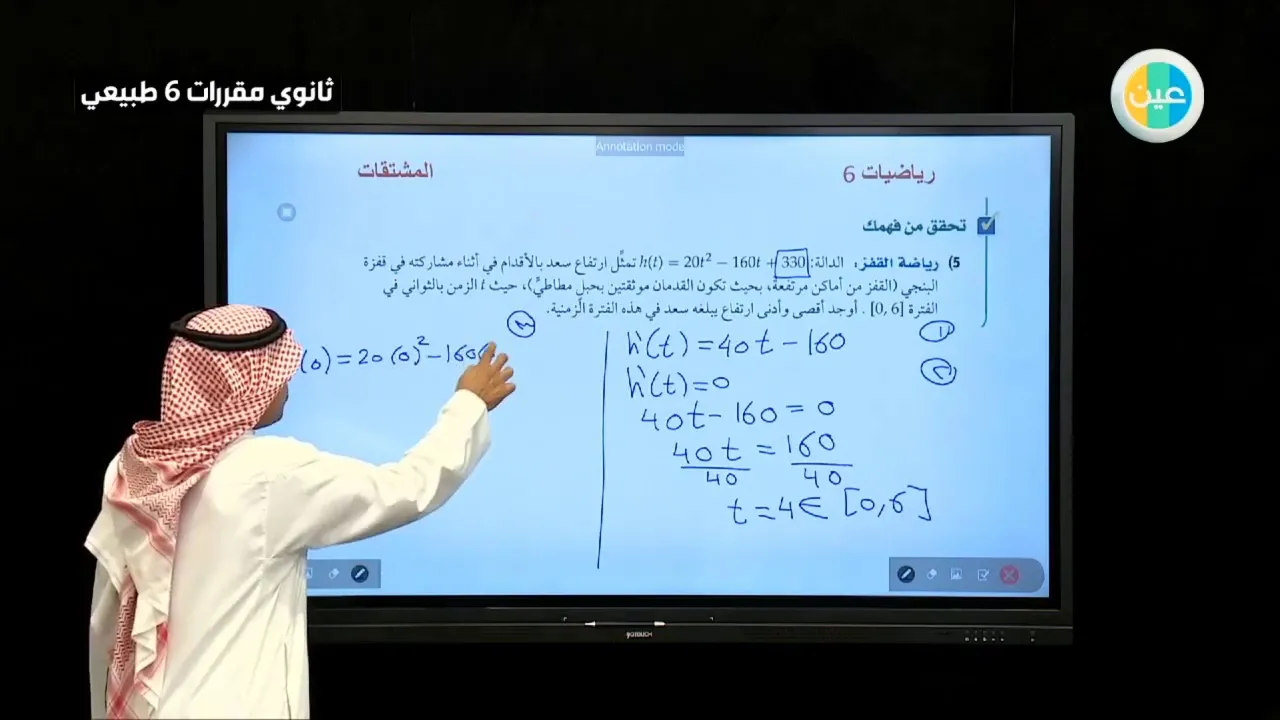 ثانوي مقررات 6 طبيعي
عين
Annotation mode
رياضيات 6
المشتقات
تحقق من فهمك
5) رياضة القفز: الدالة: h(t) = 20t² − 160t + 330 تمثِّل ارتفاع سعد بالأقدام في أثناء مشاركته في قفزة
البنجي (القفز من أماكن مرتفعة، بحيث تكون القدمان موثقتين بحبلٍ مطاطيٍّ)، حيث t الزمن بالثواني في
الفترة [0, 6] . أوجد أقصى وأدنى ارتفاع يبلغه سعد في هذه الفترة الزمنية.
١
h'(t) = 40t − 160
٢
h'(t) = 0
40t − 160 = 0
40t = 160
40 40
t = 4 ∈ [0, 6]
٣
(0) = 20(0)² − 160(